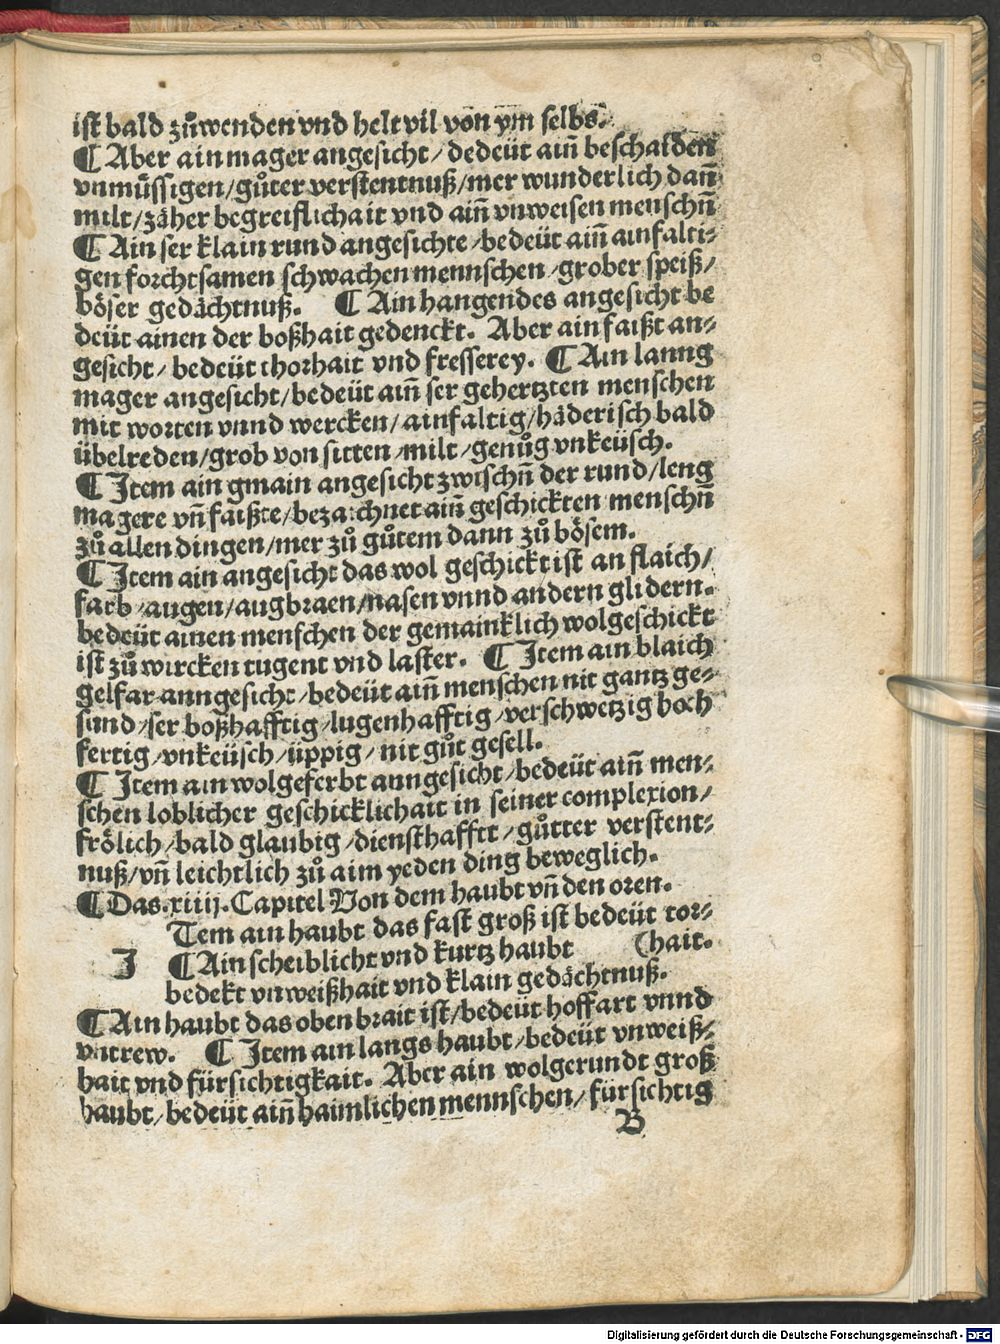 ist bald zůwenden vnd helt vil von ym selbs.
¶ Aber ain mager angesicht / dedeüt ain̄ beschaiden
vnmüssigen / gůter verstentnuß / mer wunderlich dan̄
milt / zäher begreiflichait vnd ain̄ vnweisen menschn̄
¶ Ain ser klain rund angesichte / bedeüt ain̄ ainfalti⸗
gen forchtsamen schwachen mennschen / grober speiß /
böser gedächtnuß. ¶ Ain hangendes angesicht be
deüt ainen der boßhait gedenckt. Aber ain faißt an⸗
gesicht / bedeüt thorhait vnd fresserey. ¶ Ain lanng
mager angesicht / bedeüt ain̄ ser gehertzten menschen
mit worten vnnd wercken / ainfaltig / häderisch bald
übelreden / grob von sitten / milt / genůg vnkeüsch.
¶ Item ain gmain angesicht zwischn̄ der rund / leng
magere vn̄ faißte / bezaichnet ain̄ geschickten menschn̄
zů allen dingen / mer zů gůtem dann zů bösem.
¶ Item ain angesicht das wol geschickt ist an flaich /
farb / augen / augbraen / nasen vnnd andern glidern.
bedeüt ainen menschen der gemainklich wolgeschickt
ist zů wircken tugent vnd laster. ¶ Item ain blaich
gelfar anngesicht / bedeüt ain̄ menschen nit gantz ge⸗
sund / ser boßhafftig / lugenhafftig / verschwetzig hoch
fertig / vnkeüsch / üppig / nit gůt gesell.
¶ Item ain wolgeferbt anngesicht / bedeüt ain̄ men⸗
schen loblicher geschicklichait in seiner complexion /
frölich / bald glaubig / diensthafftt / gůtter verstent⸗
nuß / vn̄ leichtlich zů aim yeden ding beweglich.
¶ Das .xiiij. Capitel Von dem haubt vn̄ den oren.
Tem ain haubt das fast groß ist bedeüt tor⸗
I ¶ Ain scheiblicht vnd kurtz haubt (hait.
bedekt vnweißhait vnd klain gedächtnuß.
¶ Ain haubt das oben brait ist / bedeüt hoffart vnnd
vntrew. ¶ Item ain langs haubt / bedeüt vnweiß⸗
hait vnd fürsichtigkait. Aber ain wolgerundt groß
haubt / bedeüt ain̄ haimlichen mennschen / fürsichtig
B
Digitalisierung gefördert durch die Deutsche Forschungsgemeinschaft - DFG